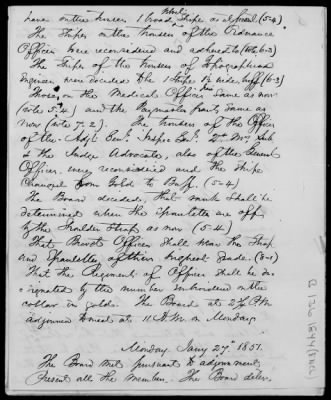 have on the trousers 1 broad white stripe as at present. (5-4)
The stripes on the trousers of the Ordnance
Officers were reconsidered and adhered to (vote 6-3)
The stripe of the trousers of Topographical
Engineers were decided to be 1 stripe 1½ wide, buff (6-3)
Those on the Medical Officers same as now
(vote 5-4) and the Paymasters pants same as
now (vote 7-2). The trousers of the Officers
of the Adjt Genl, Inspr Genl, Qr Mr, Sub
& the Judge Advocate, also of the General
Officers, were reconsidered and the stripe
changed from Gold to Buff. (5-4)
The Board decided, that rank shall be
determined when the epaulettes are off
by the Shoulder Strap as now (5-4)
That Brevet Officers shall wear the Strap
and Epaulettes of their highest grade. (8-1)
That the Regiment of Officers shall be de-
signated by the number embroidered on the
collar in gold. The Board at 2½ P.M.
adjourned to meet at 11 A.M. on Monday.
Monday Jany 27th 1851.
The Board met pursuant to adjournment
Present all the members. The Board deter-